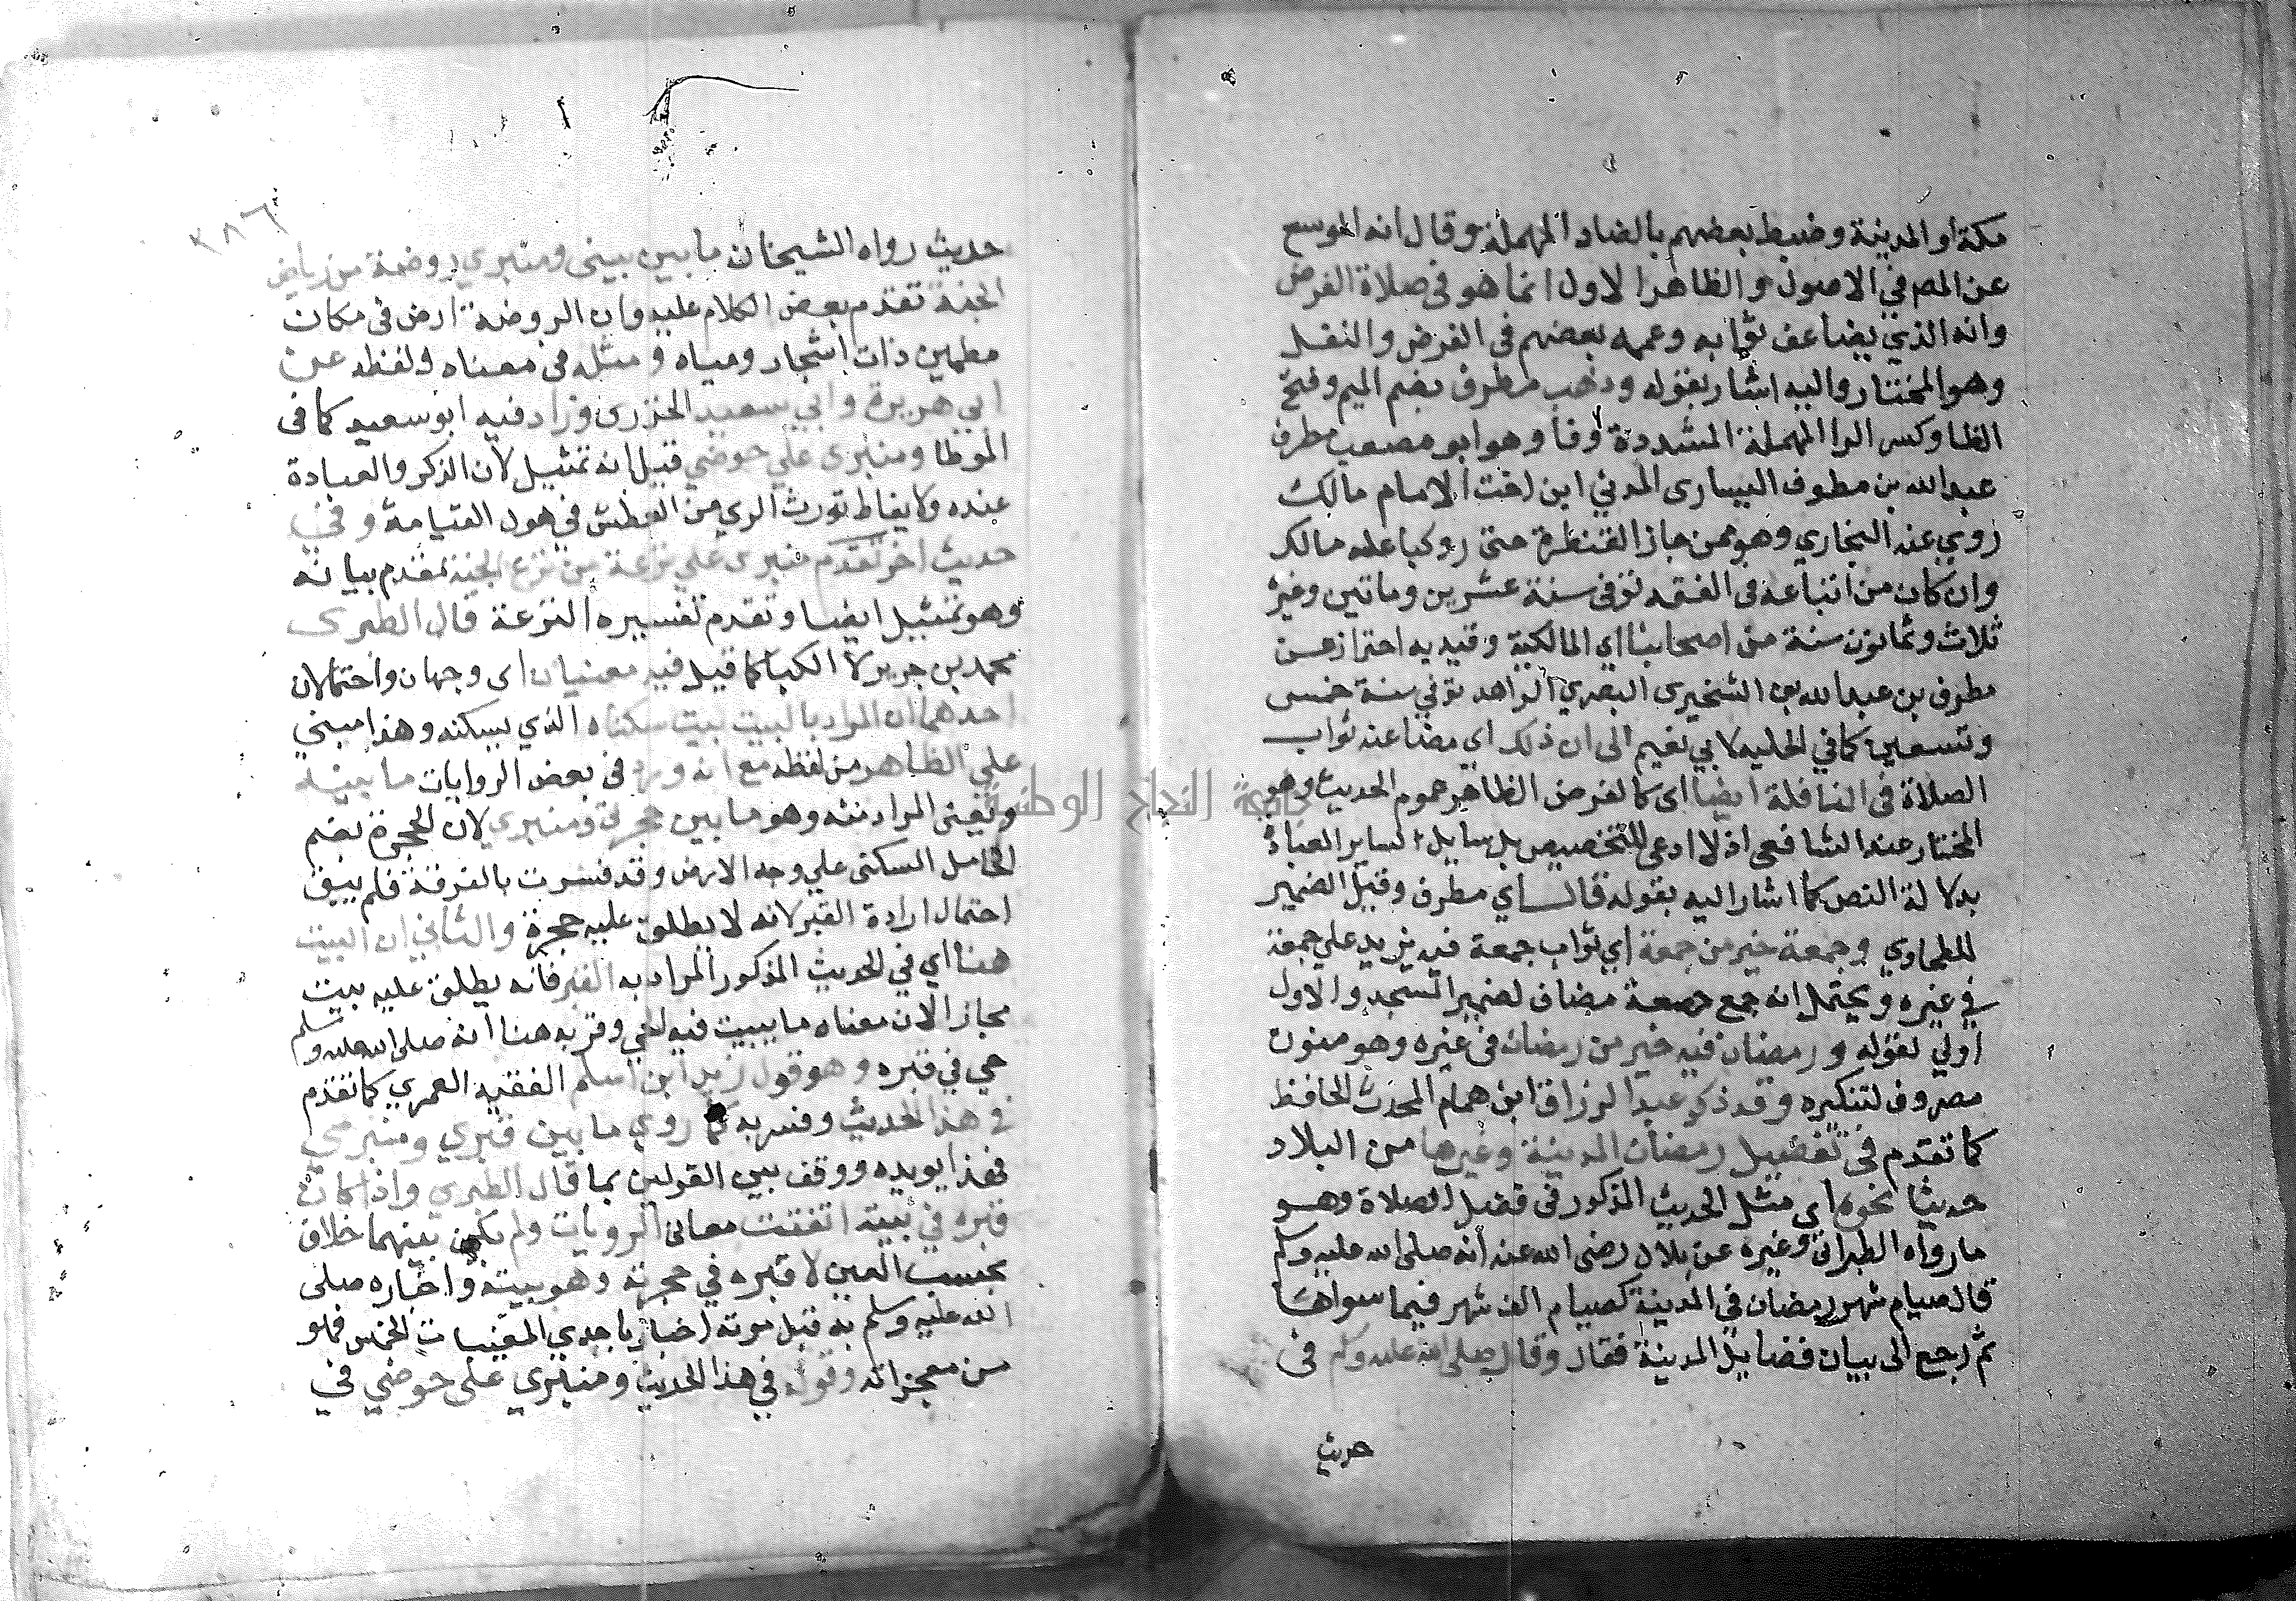 مكة او المدينة وضبط بعضهم بالضاد المهملة وقال انه الموسع
عن المص في الاصول والظاهر الاول انما هو في صلاة الفرض
وانه الذي يضاعف ثوابه وعممه بعضهم في الفرض والنفل
وهو المختار واليه اشار بقوله وذهب مطرف بضم الميم وفتح
الطا وكسر الرا المهملة المشددة وفا وهو ابو مصعب مطرف
عبد الله بن مطرف اليسارى المدني ابن اخت الامام مالك
روي عنه البخاري وهو ممن جاز القنطرة حتى روكبا عليه مالك
وان كان من اتباعه في الفقه توفى سنة عشرين وماتين وغيره
ثلاث وثمانون سنة من اصحابنا اي المالكية وقيد به احتراز عن
مطرف بن عبد الله بن الشخيرى البصري الزاهد توفي سنة خمس
وتسعين كما في الحليه لابي نعيم الى ان ذلك اي مضاعفة ثواب
الصلاة في النافلة ايضا اى كالفرض الظاهر عموم الحديث وهو
المختار عند الشافعى اذ لا ادعى للتخصيص بل ساير العبادة
بدلالة النص كما اشار اليه بقوله قال اي مطرف وقيل الضمير
للطحاوي وجمعة خير من جمعة اي ثواب جمعة فيه يزيد على جمعة
في غيره ويحتمل انه جمع جمعة مضاف لضمير المسجد والاول
اولي لقوله ورمضان فيه خير من رمضان في غيره وهو منون
مصروف لتنكيره وقد ذكر عبد الرزاق ابن همام المحدث الحافظ
كما تقدم في تفضيل رمضان المدينة وغيرها من البلاد
حديثا نحوه اي مثل الحديث المذكور في فضل الصلاة وهو
ما رواه الطبراني وغيره عن بلال رضى الله عنه انه صلى الله عليه وسلم
قال صيام شهر رمضان في المدينة كصيام الف شهر فيما سواها
ثم رجع الى بيان فضايل المدينة فقال وقال صلى الله عليه وسلم في
حديث
٣٨٦
حديث رواه الشيخان ما بين بيتى ومنبري روضة من رياض
الجنة تقدم بعض الكلام عليه وان الروضة ارض في مكان
مطمين ذات اشجار ومياه ومثله في معناه ولفظه عن
ابي هريرة وابي سعيد الخدرى وزاد فيه ابو سعيد كما في
الموطا ومنبرى علي حوضي قيل انه تمثيل لان الذكر والعبادة
عنده تورث الري من العطش في هول القيامة وفي
حديث اخر تقدم منبرى على ترعة من ترع الجنة تقدم بيانه
وهو تمثيل ايضا وتقدم تفسيره الترعة قال الطبرى
محمد بن جرير لا الكيا كما قيل فيه معنيان اى وجهان واحتمالان
احدهما ان المراد بالبيت بيت سكناه الذي يسكنه وهذا مبني
علي الظاهر من لفظه مع انه ورد في بعض الروايات ما يبينه
ويعين المراد منه وهو ما بين حجرتي ومنبري لان الحجرة بضم
الحا السكنى علي وجه الارض وقد فسرت بالغرفة فلم يبق
احتمال ارادة القبر لانه لا يطلق عليه حجرة والثاني ان البيت
هنا اي في الحديث المذكور المراد به القبر فانه يطلق عليه بيت
مجازا لان معناه ما يبيت فيه لحي وقر به هنا انه صلى الله عليه وسلم
حي في قبره وهو قول زيد ابن اسلم الفقيه العمري كما تقدم
في هذا الحديث وفسر به كما روي ما بين قبري ومنبرى
فهذا يويده ووقف بين القولين بما قال الطبري واذا كان
قبره في بيته اتفقت معانى الروايات ولم يكن بينهما خلاف
بحسب العين لا قبره في حجرته وهو بيته واخباره صلى
الله عليه وسلم به قبل موته اخبار باحدي المغيبات الخمس فهو
من معجزاته وقوله في هذا الحديث ومنبري على حوضي في
جامعة النجاح الوطنية